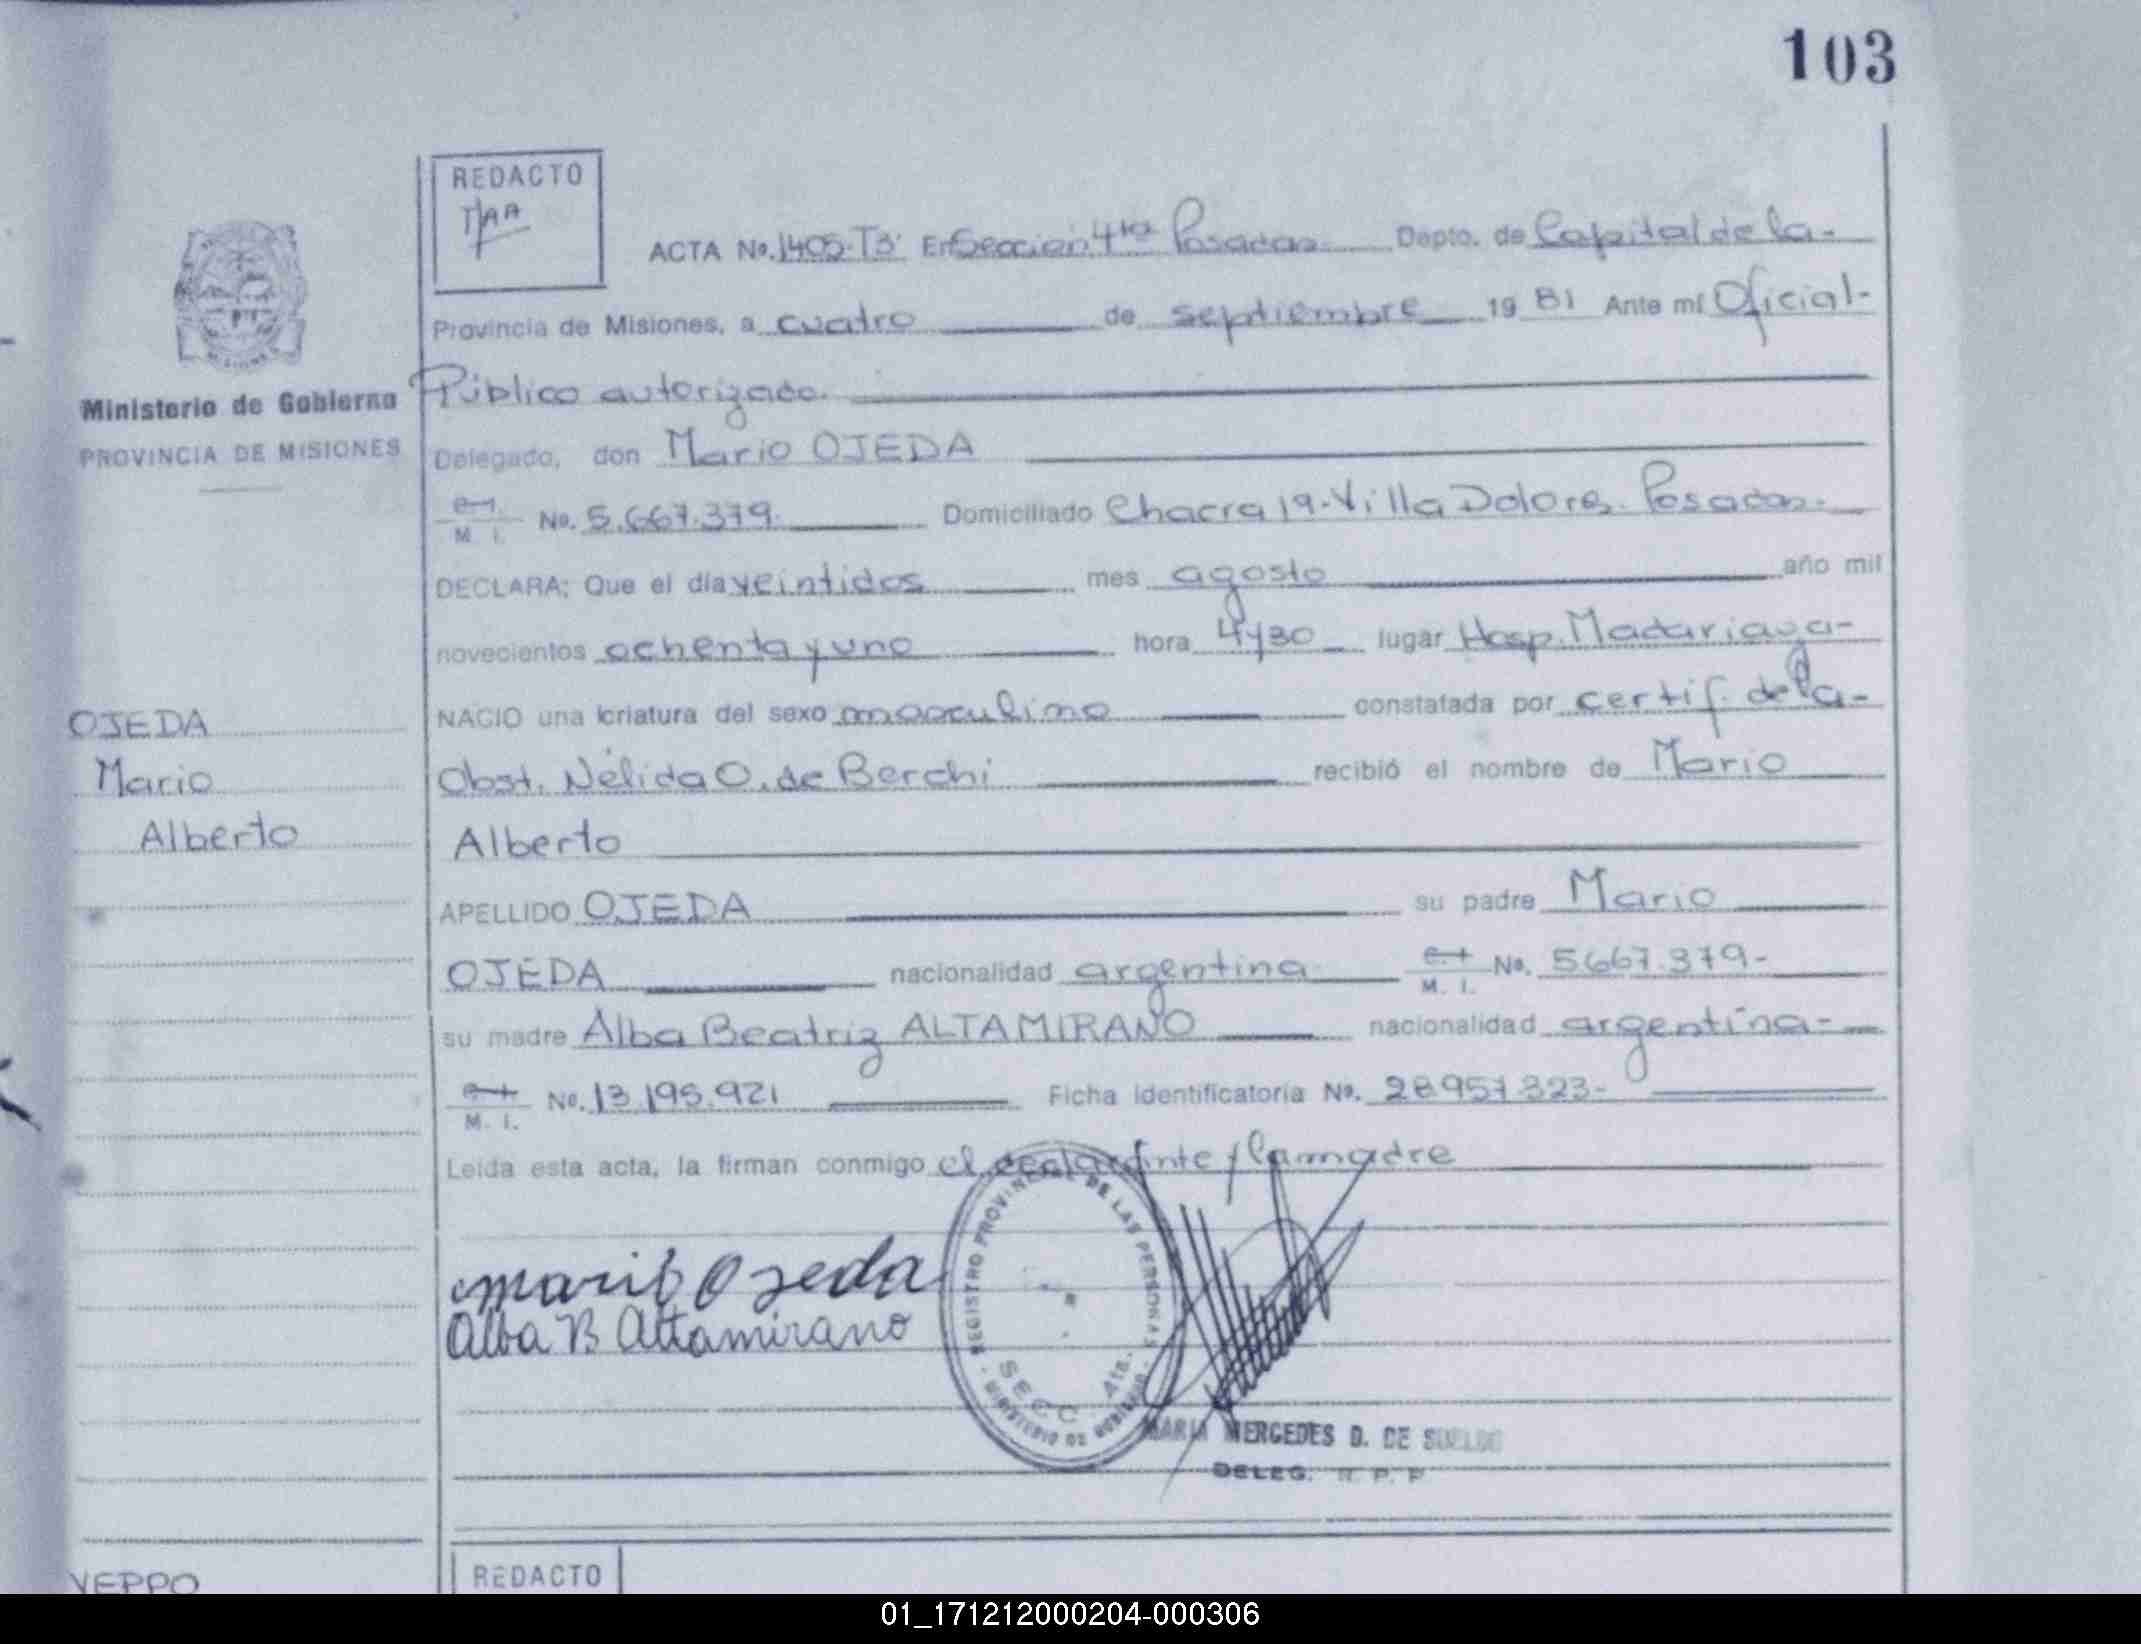 103
REDACTO
ACTA No. 1405-T3 En Sección 4ta Posadas Depto. de Capital de la-
Provincia de Misiones, a cuatro de septiembre 19 81 Ante mí Oficial-
Público autorizado.
Ministerio de Gobierno
PROVINCIA DE MISIONES
Delegado, don Mario OJEDA
M. I. No. 5.667.379. Domiciliado Chacra 19-Villa Dolores-Posadas.-
DECLARA: Que el día veintidos mes agosto año mil
novecientos ochenta y uno hora 4y30 lugar Hosp. Madariaga-
NACIO una criatura del sexo masculino constatada por certif. de la-
Obst. Nélida O. de Berchi recibió el nombre de Mario
Alberto
OJEDA
Mario
Alberto
APELLIDO OJEDA su padre Mario
OJEDA nacionalidad argentina M. I. No. 5.667.379-
su madre Alba Beatriz ALTAMIRANO nacionalidad argentina-
M. I. No. 13.195.921 Ficha identificatoria No. 28.957.323-
Leída esta acta, la firman conmigo el declarante y la madre
Mario Ojeda
Alba B Altamirano
REGISTRO PROVINCIAL DE LAS PERSONAS
SECC. 4ta.
MINISTERIO DE GOBIERNO
MARIA MERCEDES D. DE
DELEG. R. P. P
YEPPO
REDACTO
01_171212000204-000306